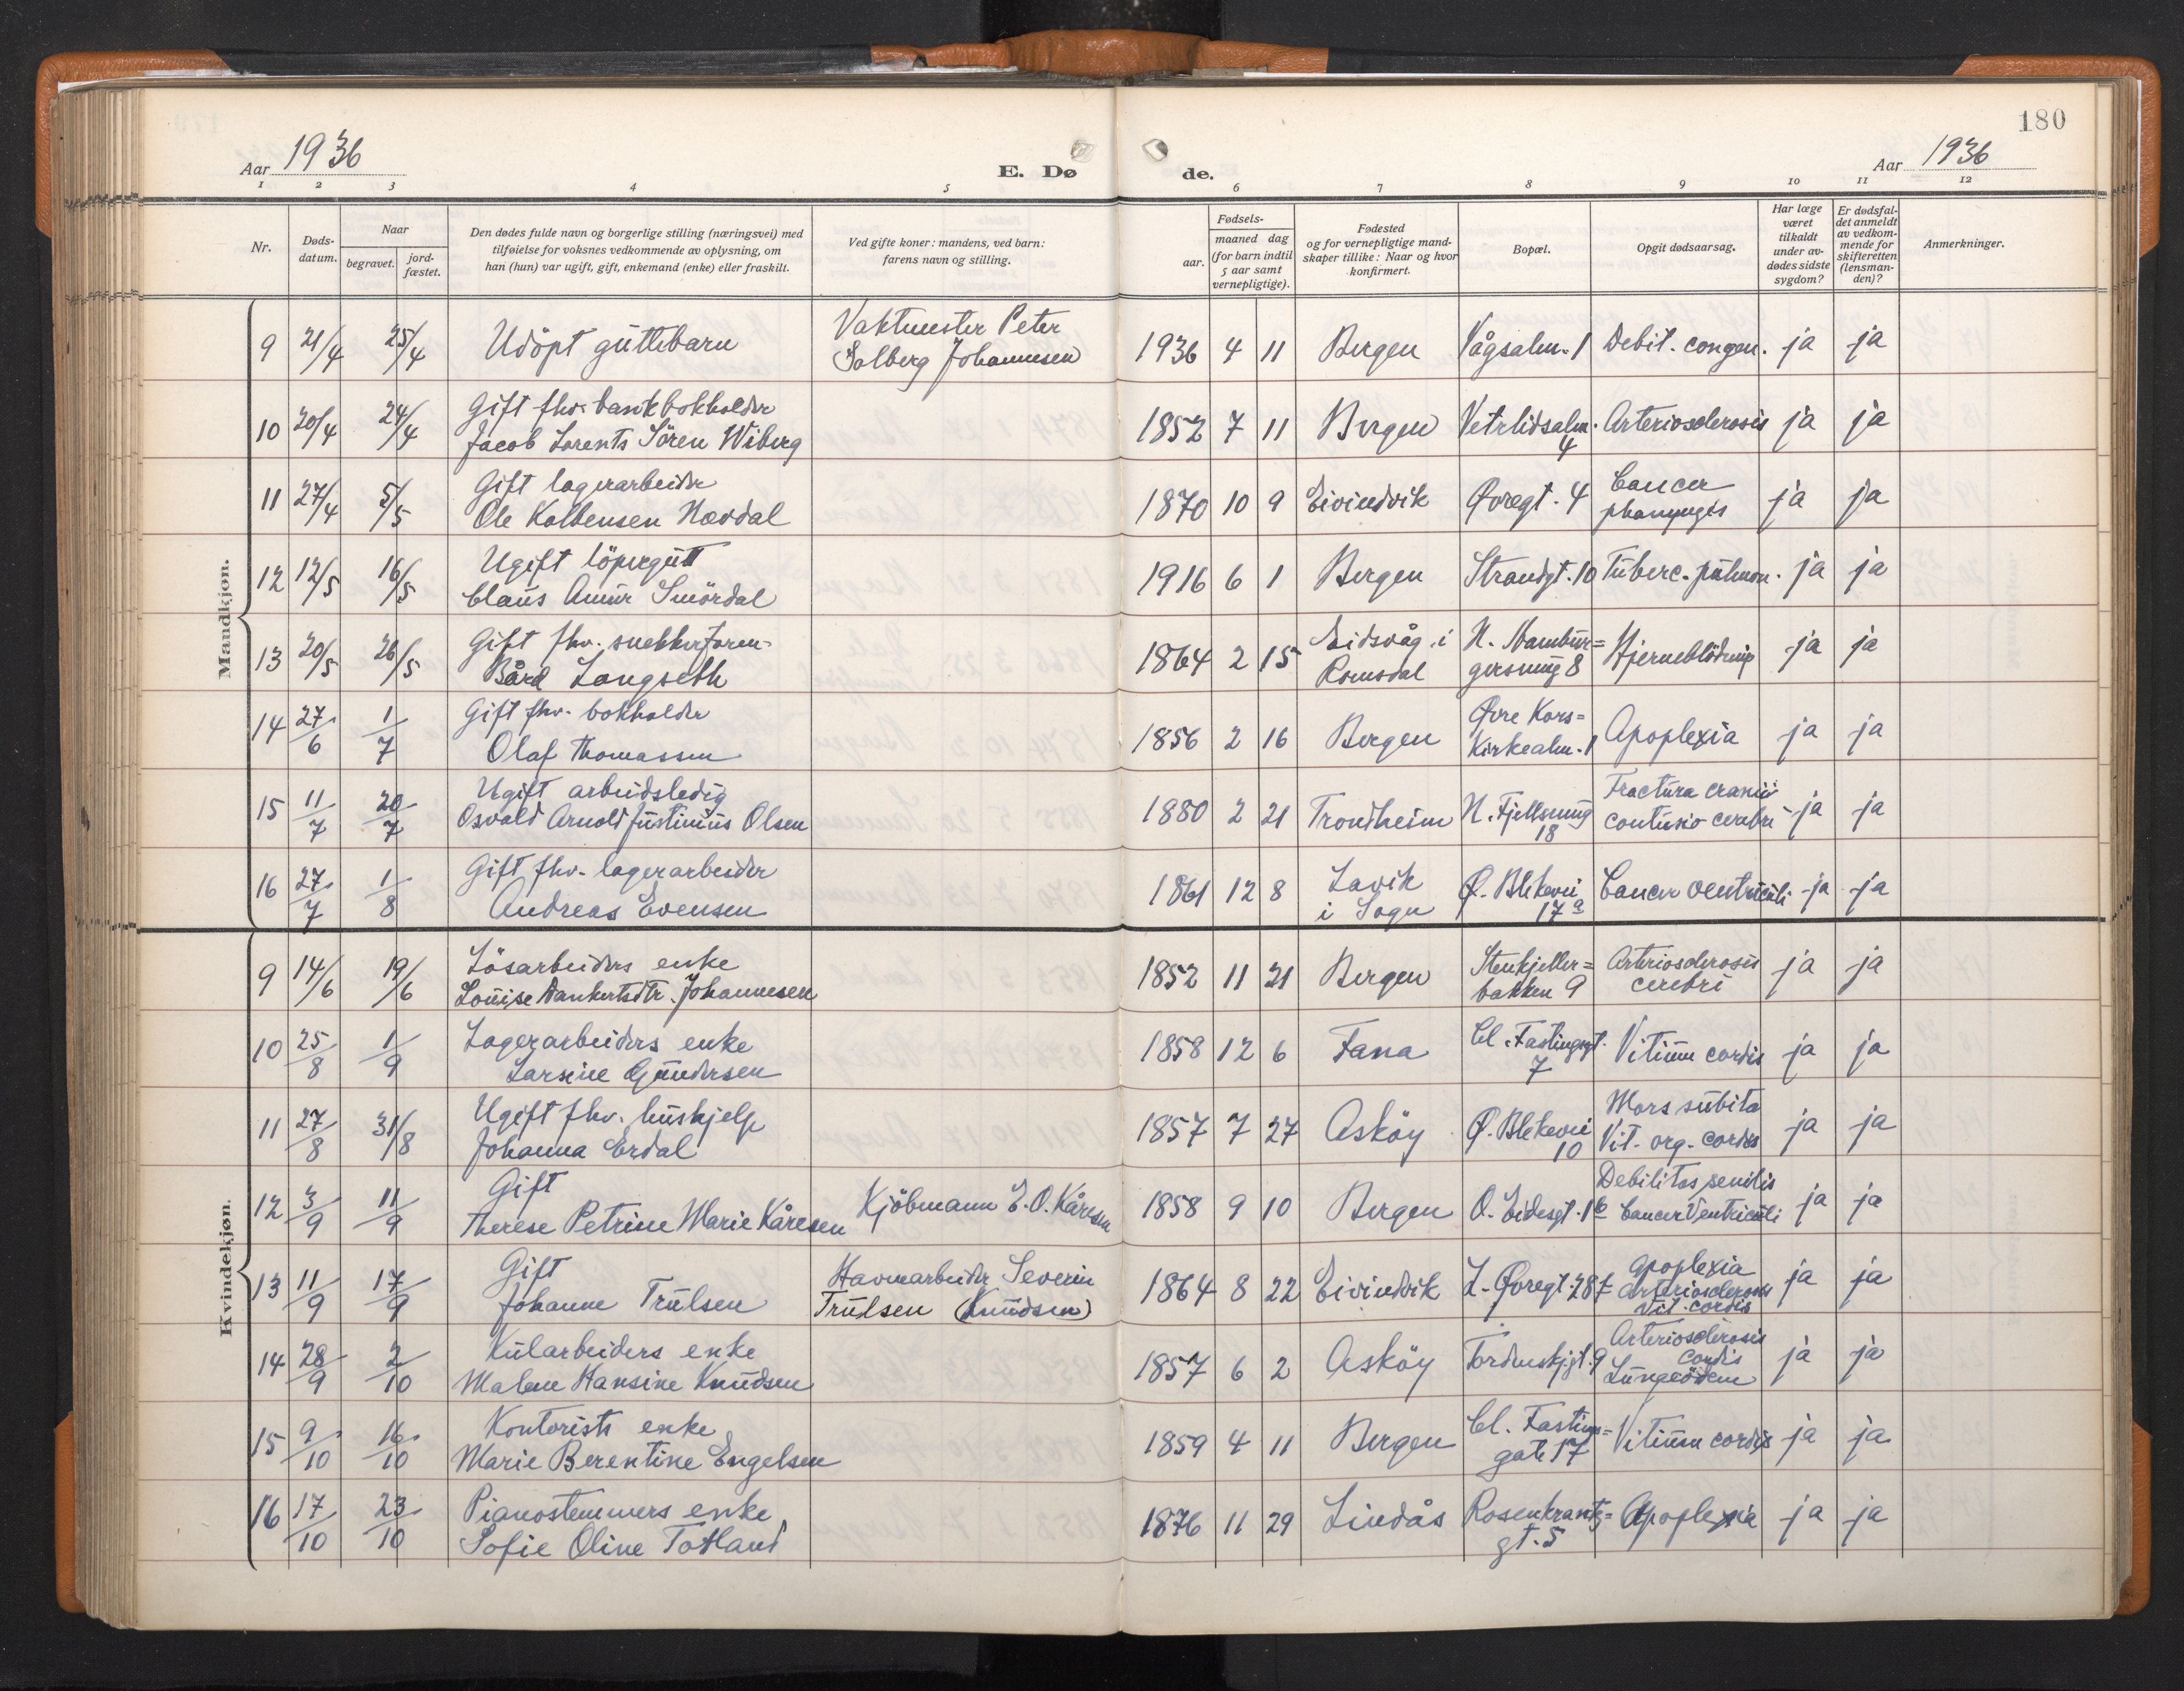 180
Aar 1936
E. Dø
de.
Aar 1936
1 2 3 4 5 6 7 8 9 10 11 12
Nr.
Døds-
datum.
Naar
begravet.
jord-
fæstet.
Den dødes fulde navn og borgerlige stilling (næringsvei) med
tilføielse for voksnes vedkommende av oplysning, om
han (hun) var ugift, gift, enkemand (enke) eller fraskilt.
Ved gifte koner: mandens, ved barn:
farens navn og stilling.
Fødsels-
aar.
maaned dag
(for barn indtil
5 aar samt
vernepligtige).
Fødested
og for vernepligtige mand-
skaper tillike: Naar og hvor
konfirmert.
Bopæl.
Opgit dødsaarsag.
Har læge
været
tilkaldt
under av-
dødes sidste
sygdom?
Er dødsfal-
det anmeldt
av vedkom-
mende for
skifteretten
(lensman-
den)?
Anmerkninger.
Mandkjøn.
9 21/4 25/4 Udöpt guttebarn
Vaktmester Peter
Solberg Johannesen
1936 4 11 Bergen Vågsalm. 1 Debit. congen. ja ja
10 20/4 24/4 Gift fhv. bankbokholder
Jacob Lorents Sören Wiberg
1852 7 11 Bergen Vetrlidsalm. 4 Arteriosclerosis ja ja
11 27/4 5/5 Gift lagerarbeider
Ole Kolbensen Nævdal
1870 10 9 Eivindvik Øvregt. 4 Cancer
pharyngis ja ja
12 12/5 16/5 Ugift löpergutt
Claus Smördal
1916 6 1 Bergen Strandgt. 10 Tuberc. pulmon. ja ja
13 20/5 26/5 Gift fhv. snekkerforen-
Bård Longseth
1864 2 15 Eidsvåg i
Romsdal
N. Hambur=
gersmug 8
Hjerneblödning ja ja
14 27/6 1/7 Gift fhv. bokholder
Olaf Thomassen
1856 2 16 Bergen
Øvre Kors=
kirkealm. 1
Apoplexia ja ja
15 11/7 20/7 Ugift arbeidsledig
Osvald Arnold Justinius Olsen
1880 2 21 Trondheim N. Fjellsmug
18
Fractura cranii
contusio cerebri ja ja
16 27/7 1/8 Gift fhv. lagerarbeider
Andreas Evensen
1861 12 8 Lavik
i Sogn
Ø. Blekevei
17a
Cancer ventriculi ja ja
Kvindekjøn.
9 14/6 19/6 Lösarbeiders enke
Louise Dankertsdtr. Johannesen
1852 11 21 Bergen
Stenkjeller=
bakken 9
Arteriosclerosis
cerebri ja ja
10 25/8 1/9 Lagerarbeiders enke
Larsine Gundersen
1858 12 6 Fana Cl. Fastingsgt.
7
Vitium cordis ja ja
11 27/8 31/8 Ugift fhv. hushjelp
Johanna Erdal
1857 7 27 Asköy Ø. Blekevei
10
Mors subita
Vit. org. cordis ja ja
12 3/9 11/9 Gift
Therese Petrine Marie Kåresen
Kjöbmann E. O. Kåresen
1858 9 10 Bergen O. Eidesgt. 1b
Debilitas senilis
Cancer Ventriculi ja ja
13 11/9 17/9 Gift
Johanne Trulsen
Havnearbeider Severin
Trulsen (Knudsen)
1864 8 22 Eivindvik L. Øvregt. 28
Apoplexia
Arteriosclerosis
Vit. cordis ja ja
14 28/9 2/10 Kularbeiders enke
Malene Hansine Knudsen
1857 6 2 Asköy Tordenskj.gt. 9
Arteriosclerosis
cordis
Lungeödem ja ja
15 9/10 16/10 Kontorists enke
Marie Berentine Engelsen
1859 4 11 Bergen
Cl. Fastings=
gate 17
Vitium cordis ja ja
16 17/10 23/10 Pianostemmers enke
Sofie Oline Totland
1876 11 29 Lindås
Rosenkrantz=
gt. 5
Apoplexia ja ja